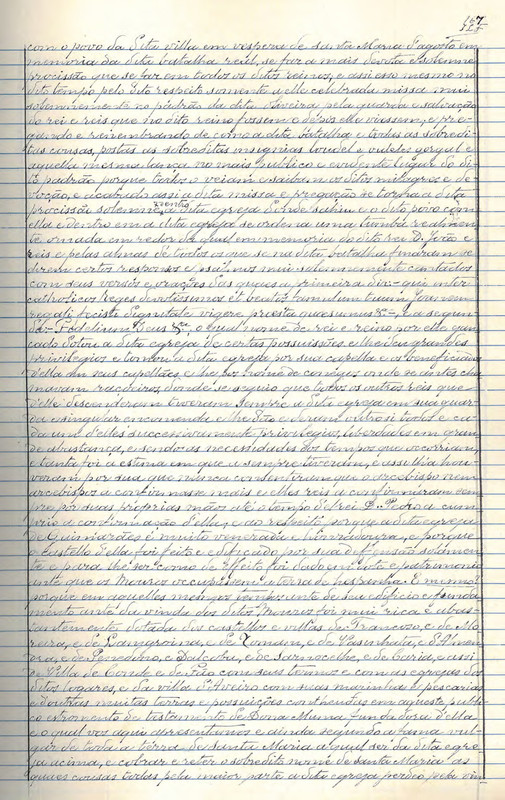 com o povo da dita villa em vespera de santa Maria d'agosto em
memoria da dita batalha real, se faz a mais devota e solemne
procissão que se faz em todos os ditos reinos, e assi esso mesmo no
dito tempo pelo dito respeito somente a elle celebrada missa mui
solemnemente no padrão da dita Oliveira pela guarda e salvação
do rei e reis que no dito reino fossem e depós elle viessem, e pre-
gando e reinembrando de como a dita batalha e todas as sobredi-
tas cousas, postas as sobreditas insignias loudel e
aquella mesma lança no mais publico e evidente lugar do di-
to padrão porque todos o vejam e saibam os ditos milagres e de-
voção, e acabado assi a dita missa e pregação se torna a dita
procissão solemne dentro a dita egreja donde sahiu e o dito povo com
ella e dentro em a dita egreja se ordena uma tumba realmen-
te ornada em redor da qual em memoria do dito rei D. João e
reis e pelas almas de todos os que se na dita batalha finaram se
dizem certos responsos e psalmos mui solemnemente cantados
com seus versos e orações das quaes a primeira diz = qui inter
catholicos reges devotissimos et beatos famulum tuum Joannem
regali fecisti dignitate vigere, præsta quæsumus &ª =, e a segun-
da = Fidelium Deus &ª =, o qual nome de rei e reino por elle
cado dotou a dita egreja de certas possuissões e lhe deu grandes
privilegios e tomou a dita egreja por sua capella e os beneficiados
d'ella em seus capellães e lhe poz nome de conegos onde se antes cha-
mavam raçoeiros, donde se seguio que todos os outros reis que
d'elle descenderam tiveram sempre a dita egreja em sua guar-
da e singular encomenda e lhe dão e deram outrosi todos e ca-
da um d'elles successivamente privilegios, liberdades em gran-
de abastança, e sendo as necessidades dos tempos que occorriam,
e tanta foi a estima em que a sempre tiveram, e assi lha hou-
veram por sua que nunca consentiram que o arcebispo nem
arcebispos a confirmasse mais e elles reis a confirmaram sem-
pre por suas proprias mãos até o tempo d'el rei D. Pedro a cum-
prio de confirmação d'ella, e ao respeito porque a dita egreja
de Guimarães é muito venerada e honrada era, e porque
o castello d'ella foi feito e edificado por sua defensão solamen-
te e para lhe ser como de effeito foi dado em dote e patrimonio
ante que os Mouros occupassem a terra de hespanha. E mesmo
porque em aquelles mesmos tempos ante do seu edificio e funda-
mento ante da vinda dos ditos Mouros foi mui rica e abas-
tantemente dotada dos castellos e villas de Trancoso, e de Mo-
reira, e de Lamgroiva, e de Numam, e de Vasinhata, e d'Amen-
dra, e de Penedono, e d'Alcobri, e de Sarnocelhe, e de Caria, e assi
de Villa de Conde e de Fão com seus termos e com as egrejas dos
ditos logares, e da villa d'Aveiro com suas marinhas e pescarias
e d'outras muitas terras e possuições contheudas em aqueste publi-
co estromento de testamento de Dona Muma fundadora d'ella
e o qual vos aqui apresentamos e ainda segundo a fama vul-
gar de toda a terra de santa Maria a qual ser da dita egre-
ja acima, e cobrar e reter o sobredito nome de santa Maria as
quaes cousas todas pela maior parte a dita egreja perdeo pela vin-